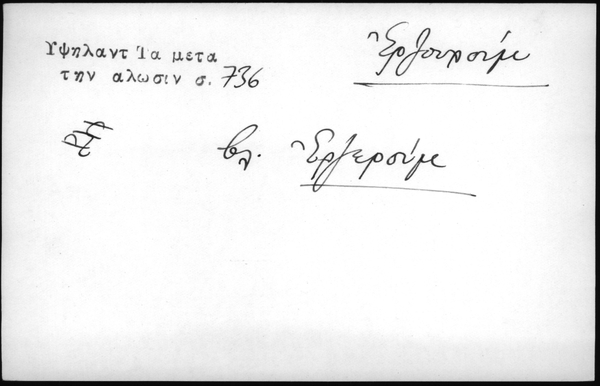 Υψηλαντ Τα μετα
την αλωσιν σ. 736
Ἐρζουρούμ
βλ. Ἐρζερούμ